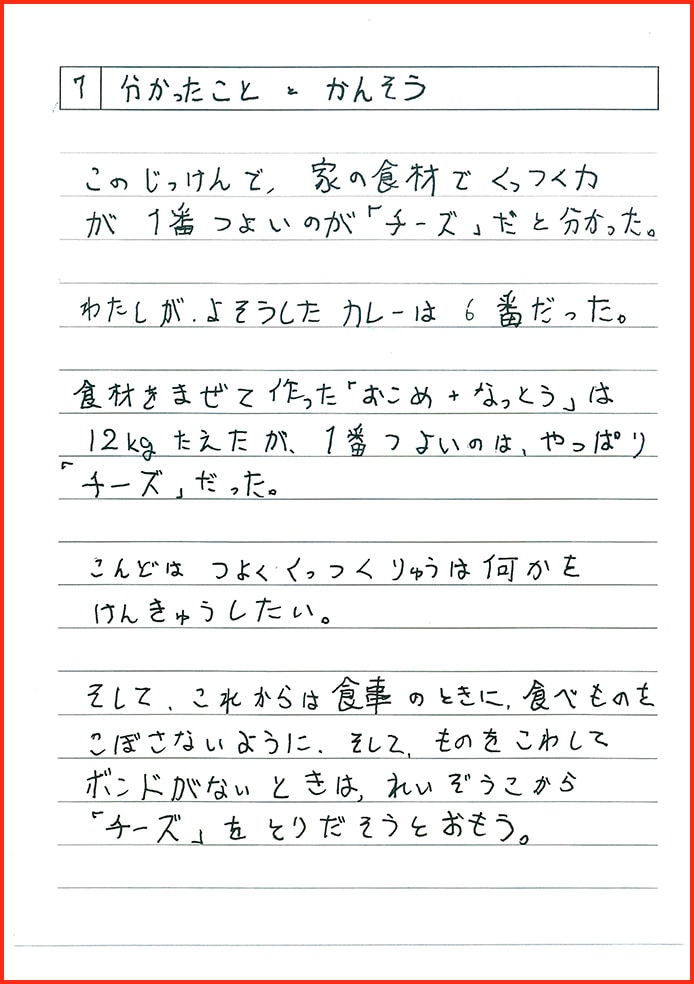 7 分かったこと と かんそう
このじっけんで、家の食材でくっつく力
が 1番つよいのが「チーズ」だと分かった。
わたしが、よそうしたカレーは 6番だった。
食材をまぜて作った「おこめ+なっとう」は
12kgたえたが、1番つよいのは、やっぱり
「チーズ」だった。
こんどは つよくくっつくりゅうは何かを
けんきゅうしたい。
そして、これからは食事のときに、食べものを
こぼさないように、そして、ものをこわして
ボンドがないときは、れいぞうこから
「チーズ」をとりだそうとおもう。